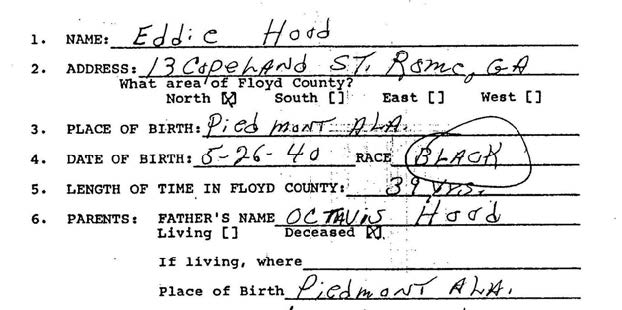 1. NAME: Eddie Hood
2. ADDRESS: 13 COPELAND ST. Rome, GA
What area of Floyd County?
North [X] South [] East [] West []
3. PLACE OF BIRTH: Piedmont ALA.
4. DATE OF BIRTH: 5-26-40 RACE BLACK
5. LENGTH OF TIME IN FLOYD COUNTY: 39 yrs.
6. PARENTS: FATHER'S NAME OCTAVIS Hood
Living [] Deceased [X]
If living, where
Place of Birth Piedmont ALA.